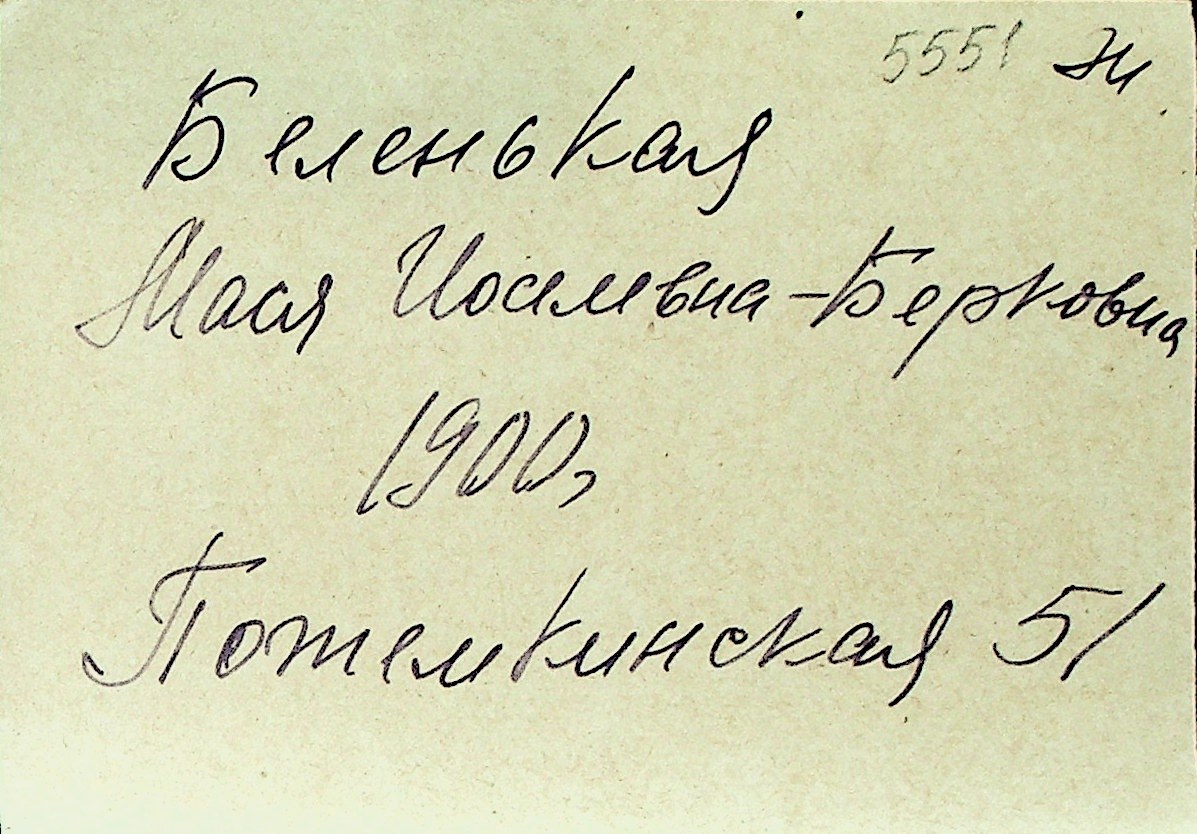 5551 Ж
Беленькая
Мася Иосиевна-Берковна
1900,
Потемкинская 51